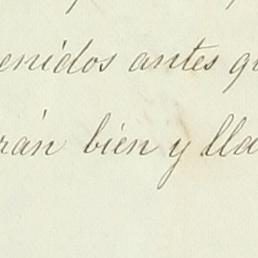 enidos antes qu
rán bien y lla